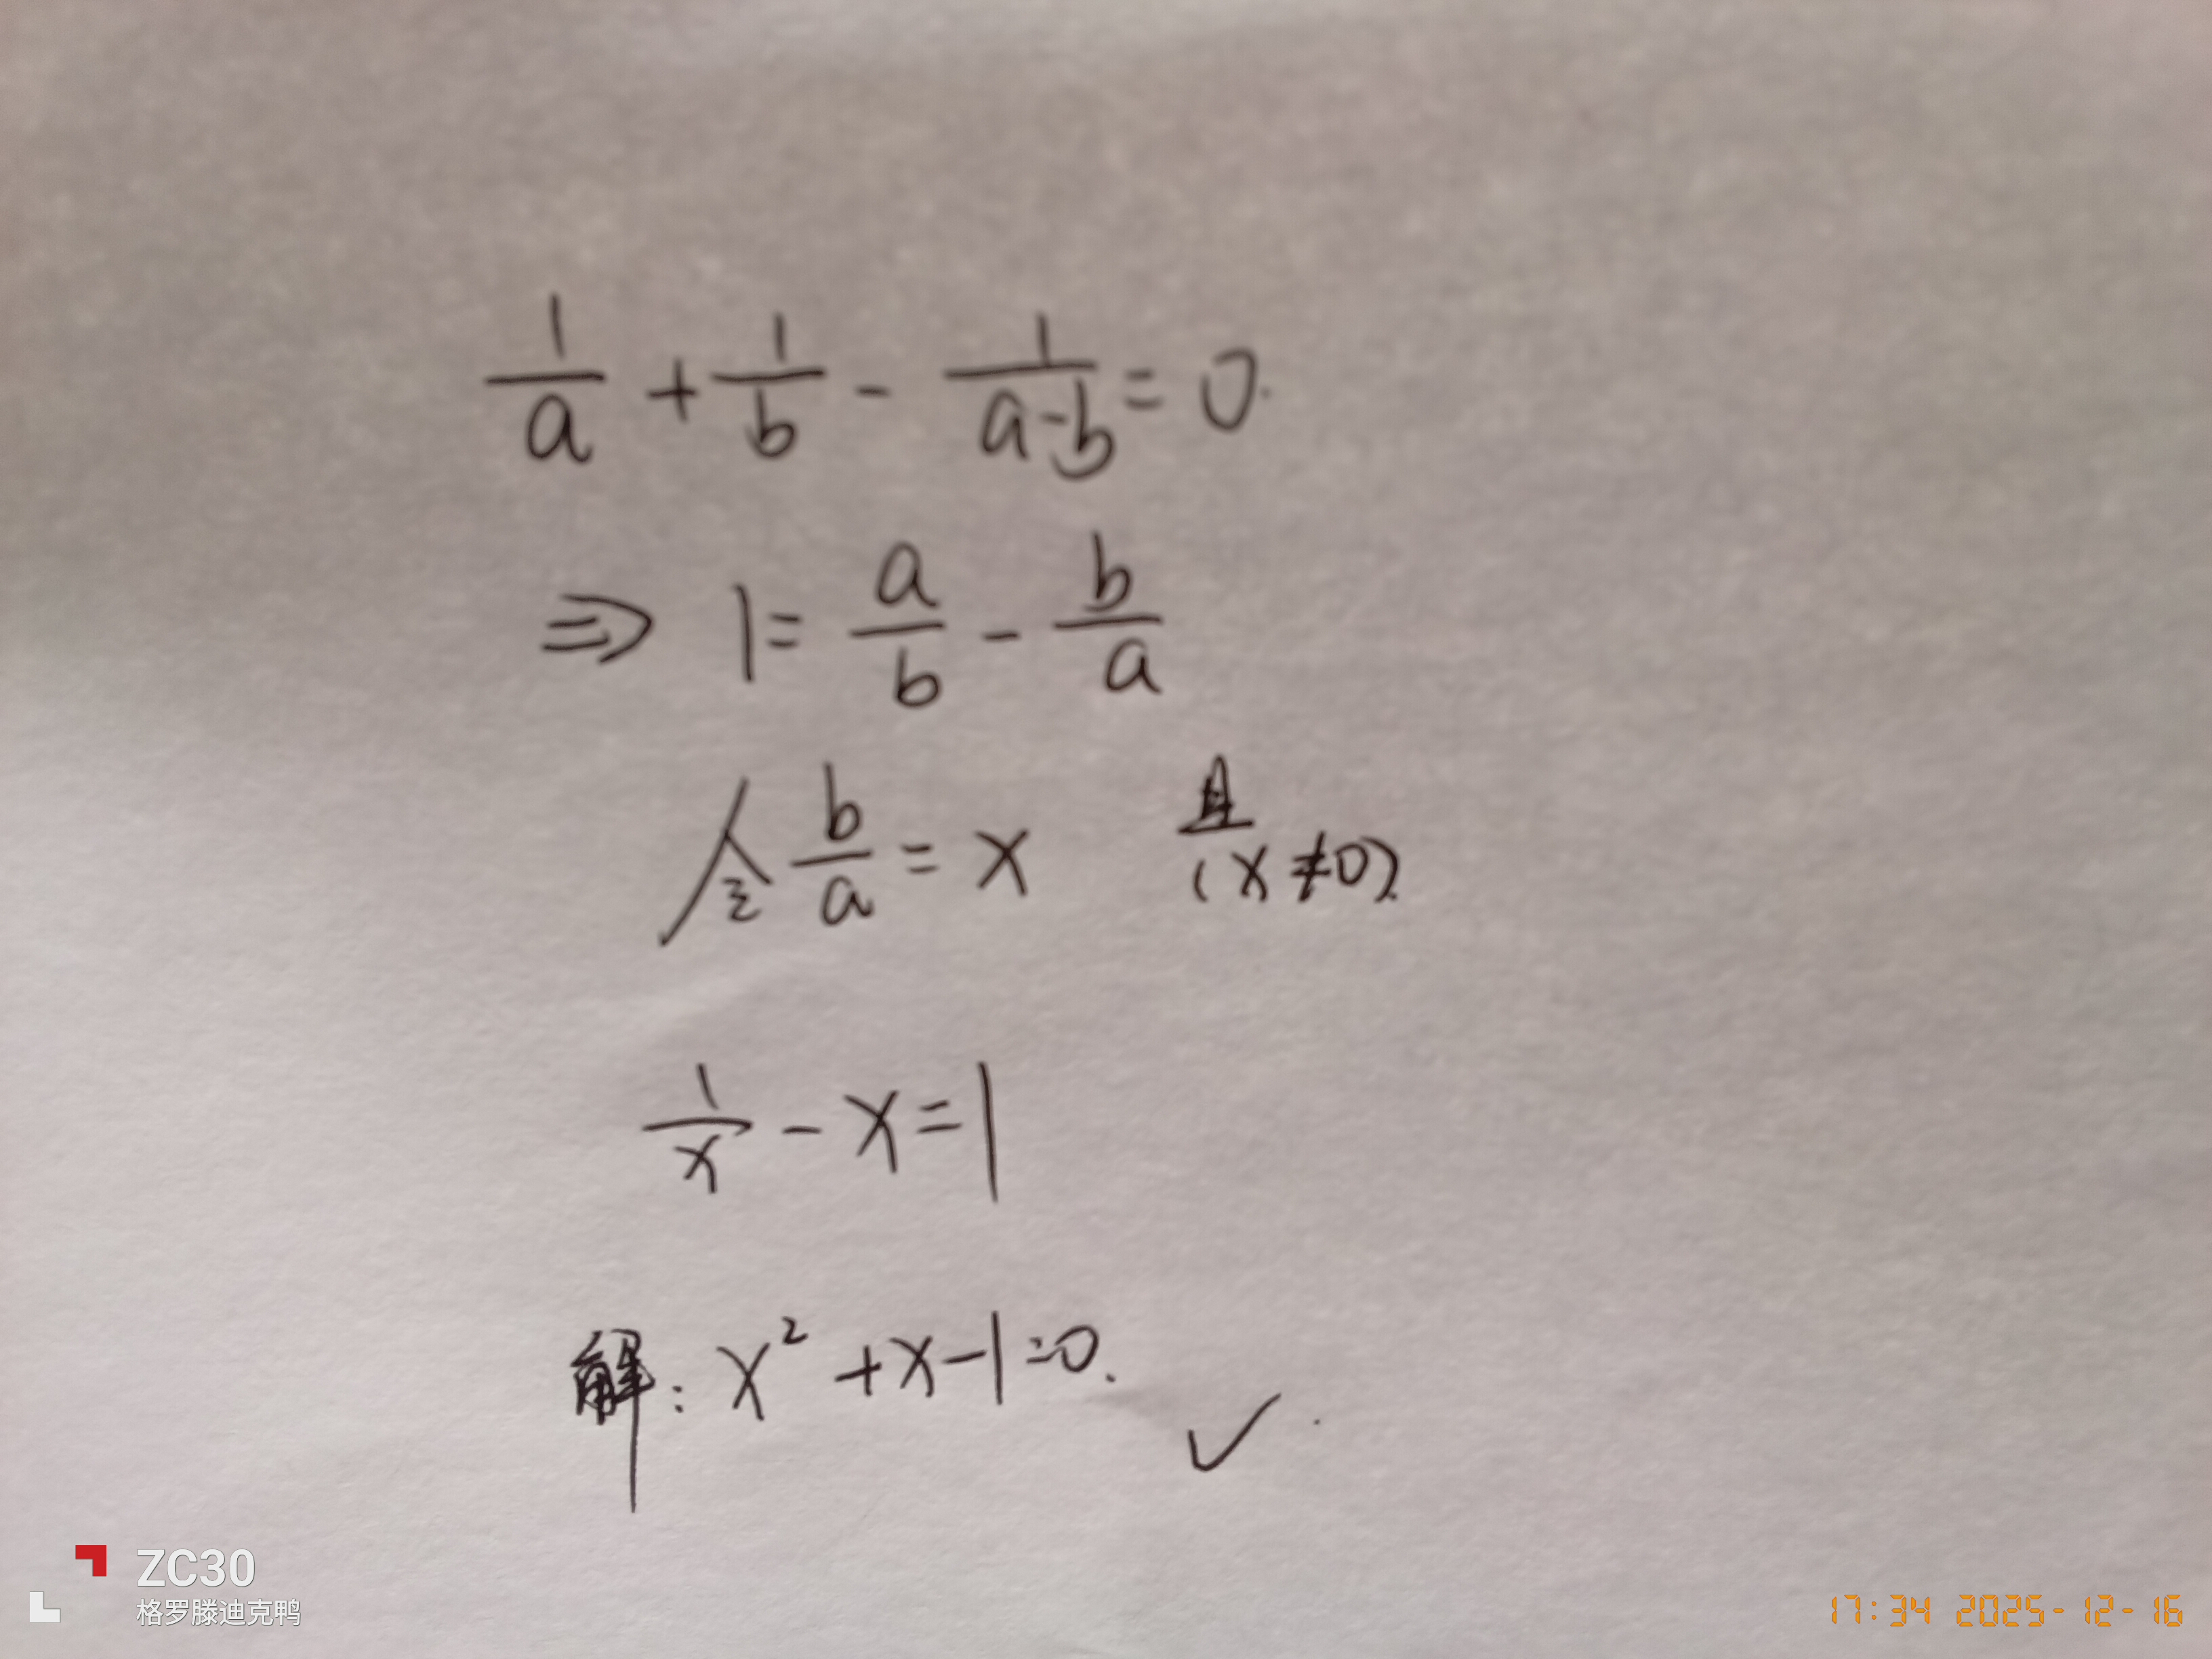 1/a + 1/b - 1/(a-b) = 0.
⇒ 1 = a/b - b/a
令 b/a = x 且 (x ≠ 0).
1/x - x = 1
解: x² + x - 1 = 0. ✓.
ZC30
格罗滕迪克鸭
17:34 2025-12-16